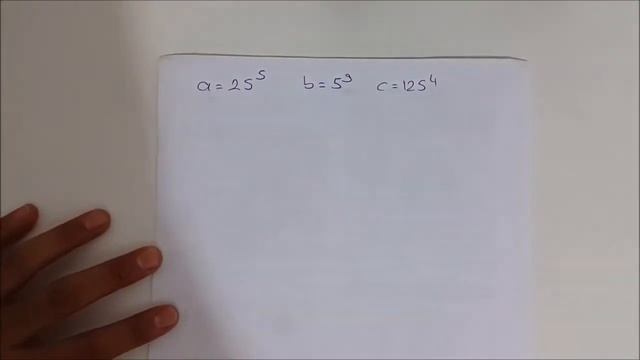 a = 25⁵ b = 5⁹ c = 125⁴